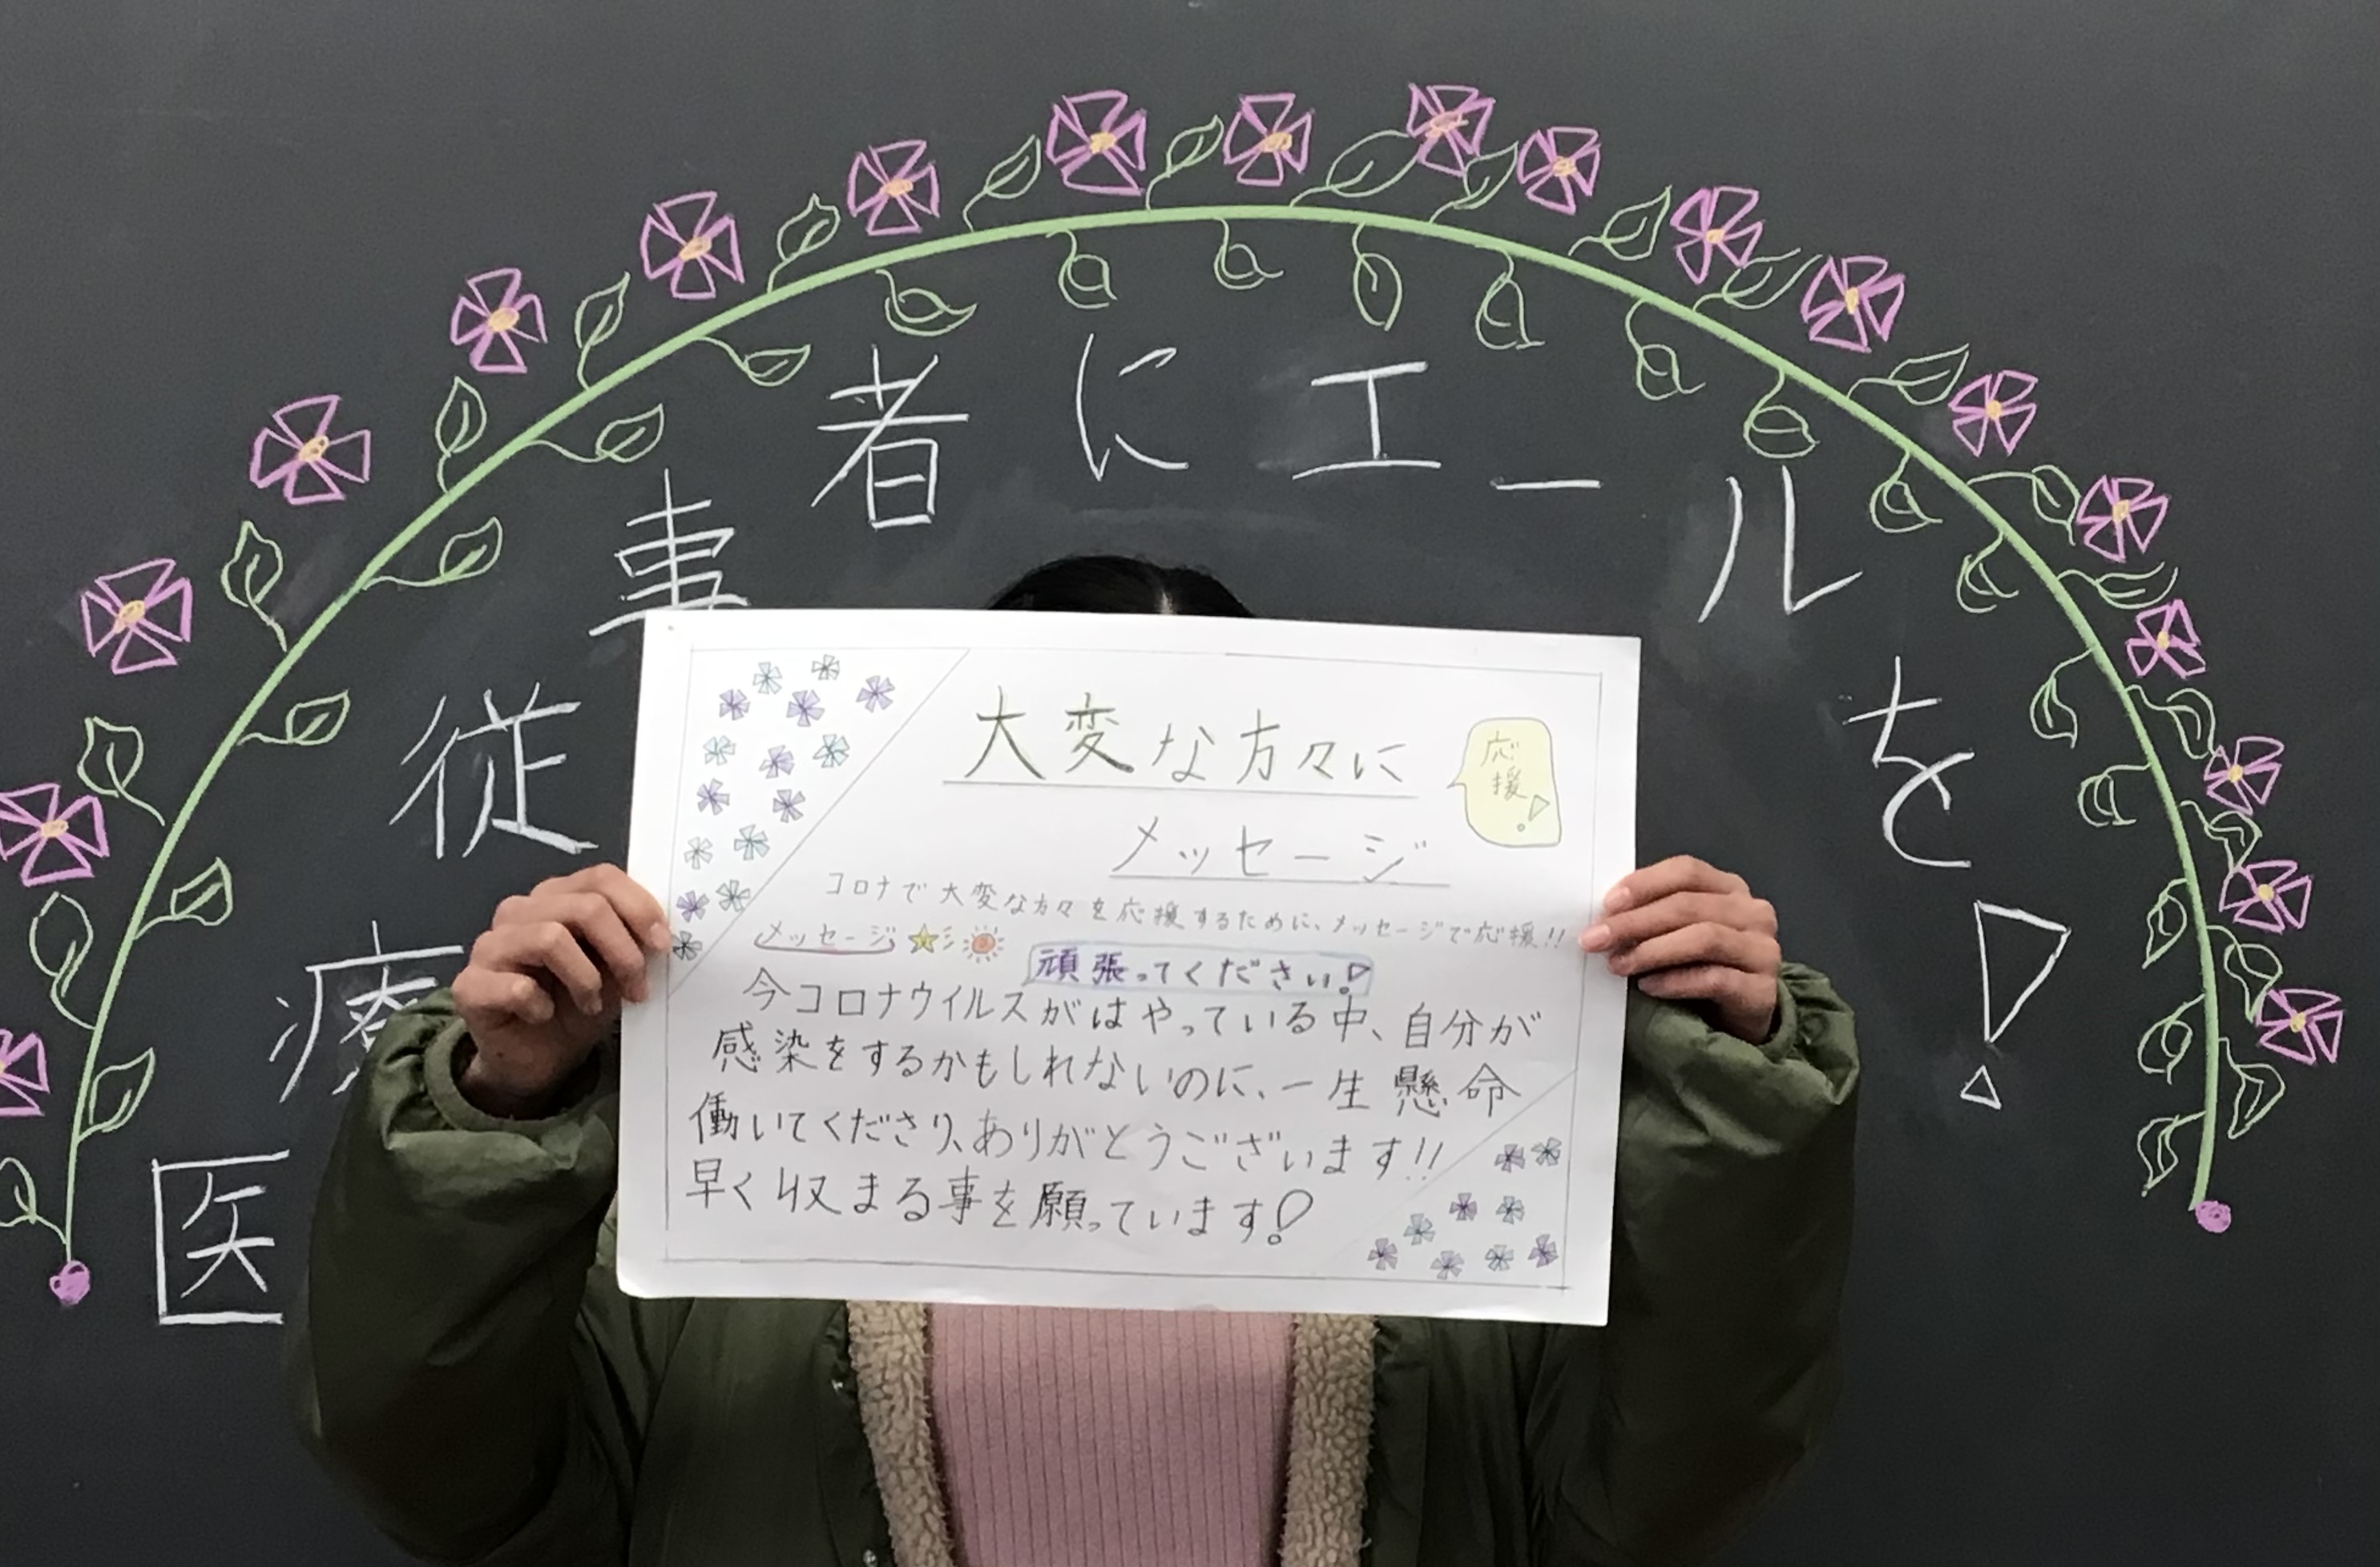 医療従事者にエールを!
大変な方々に
メッセージ
応援!
コロナで大変な方々を応援するために、メッセージで応援!!
メッセージ
頑張ってください!
今コロナウイルスがはやっている中、自分が
感染をするかもしれないのに、一生懸命
働いてくださり、ありがとうございます!!
早く収まる事を願っています!